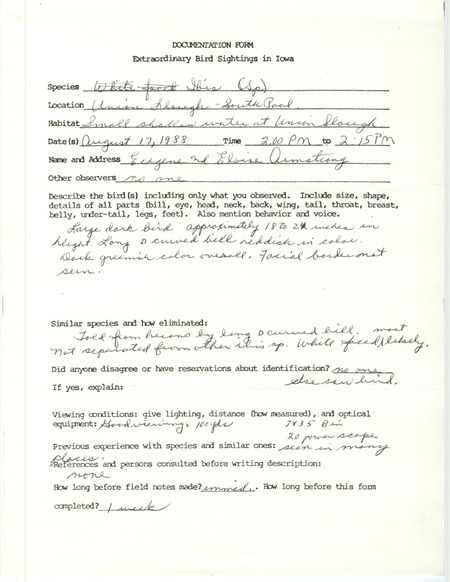 DOCUMENTATION FORM
Extraordinary Bird Sightings in Iowa
Species White-faced Ibis (Sp)
Location Union Slough - South Pool
Habitat Small shallow water at Union Slough
Date(s) August 17, 1988 Time 2:00 PM to 2:15 PM
Name and Address Eugene and Eloise Armstrong
Other observers no one
Describe the bird(s) including only what you observed. Include size, shape,
details of all parts (bill, eye, head, neck, back, wing, tail, throat, breast,
belly, under-tail, legs, feet). Also mention behavior and voice.
Large dark bird approximately 18 to 24 inches in
height. Long D curved bill reddish in color.
Dark greenish color overall. Facial border not
seen.
Similar species and how eliminated:
Told from herons by long D curved bill. most
Not separated from other ibis sp. White faced likely.
Did anyone disagree or have reservations about identification? no one
If yes, explain: else saw bird.
Viewing conditions: give lighting, distance (how measured), and optical
equipment: Good viewing. 100 yds 7X35 Bin
20 power scope
Previous experience with species and similar ones: seen in many
places.
References and persons consulted before writing description:
none
How long before field notes made? immed.. How long before this form
completed? 1 week